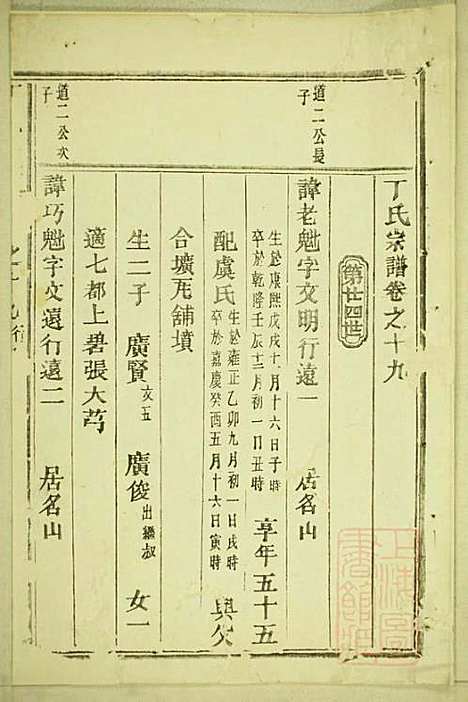 丁氏宗譜卷之十九
第廿四世
道二公長子
諱老魁字文明行遠一 居名山
生於康熙戊戌十一月十六日子時
卒於乾隆壬辰十二月初一日丑時
享年五十五
配虞氏
生於雍正乙卯九月初一日戌時
卒於嘉慶癸酉五月十六日寅時
與父
合壙庑舖墳
生二子 廣賢文五 廣俊出繼叔 女一
適七都上碧張大芎
道二公次子
諱巧魁字文遠行遠二 居名山